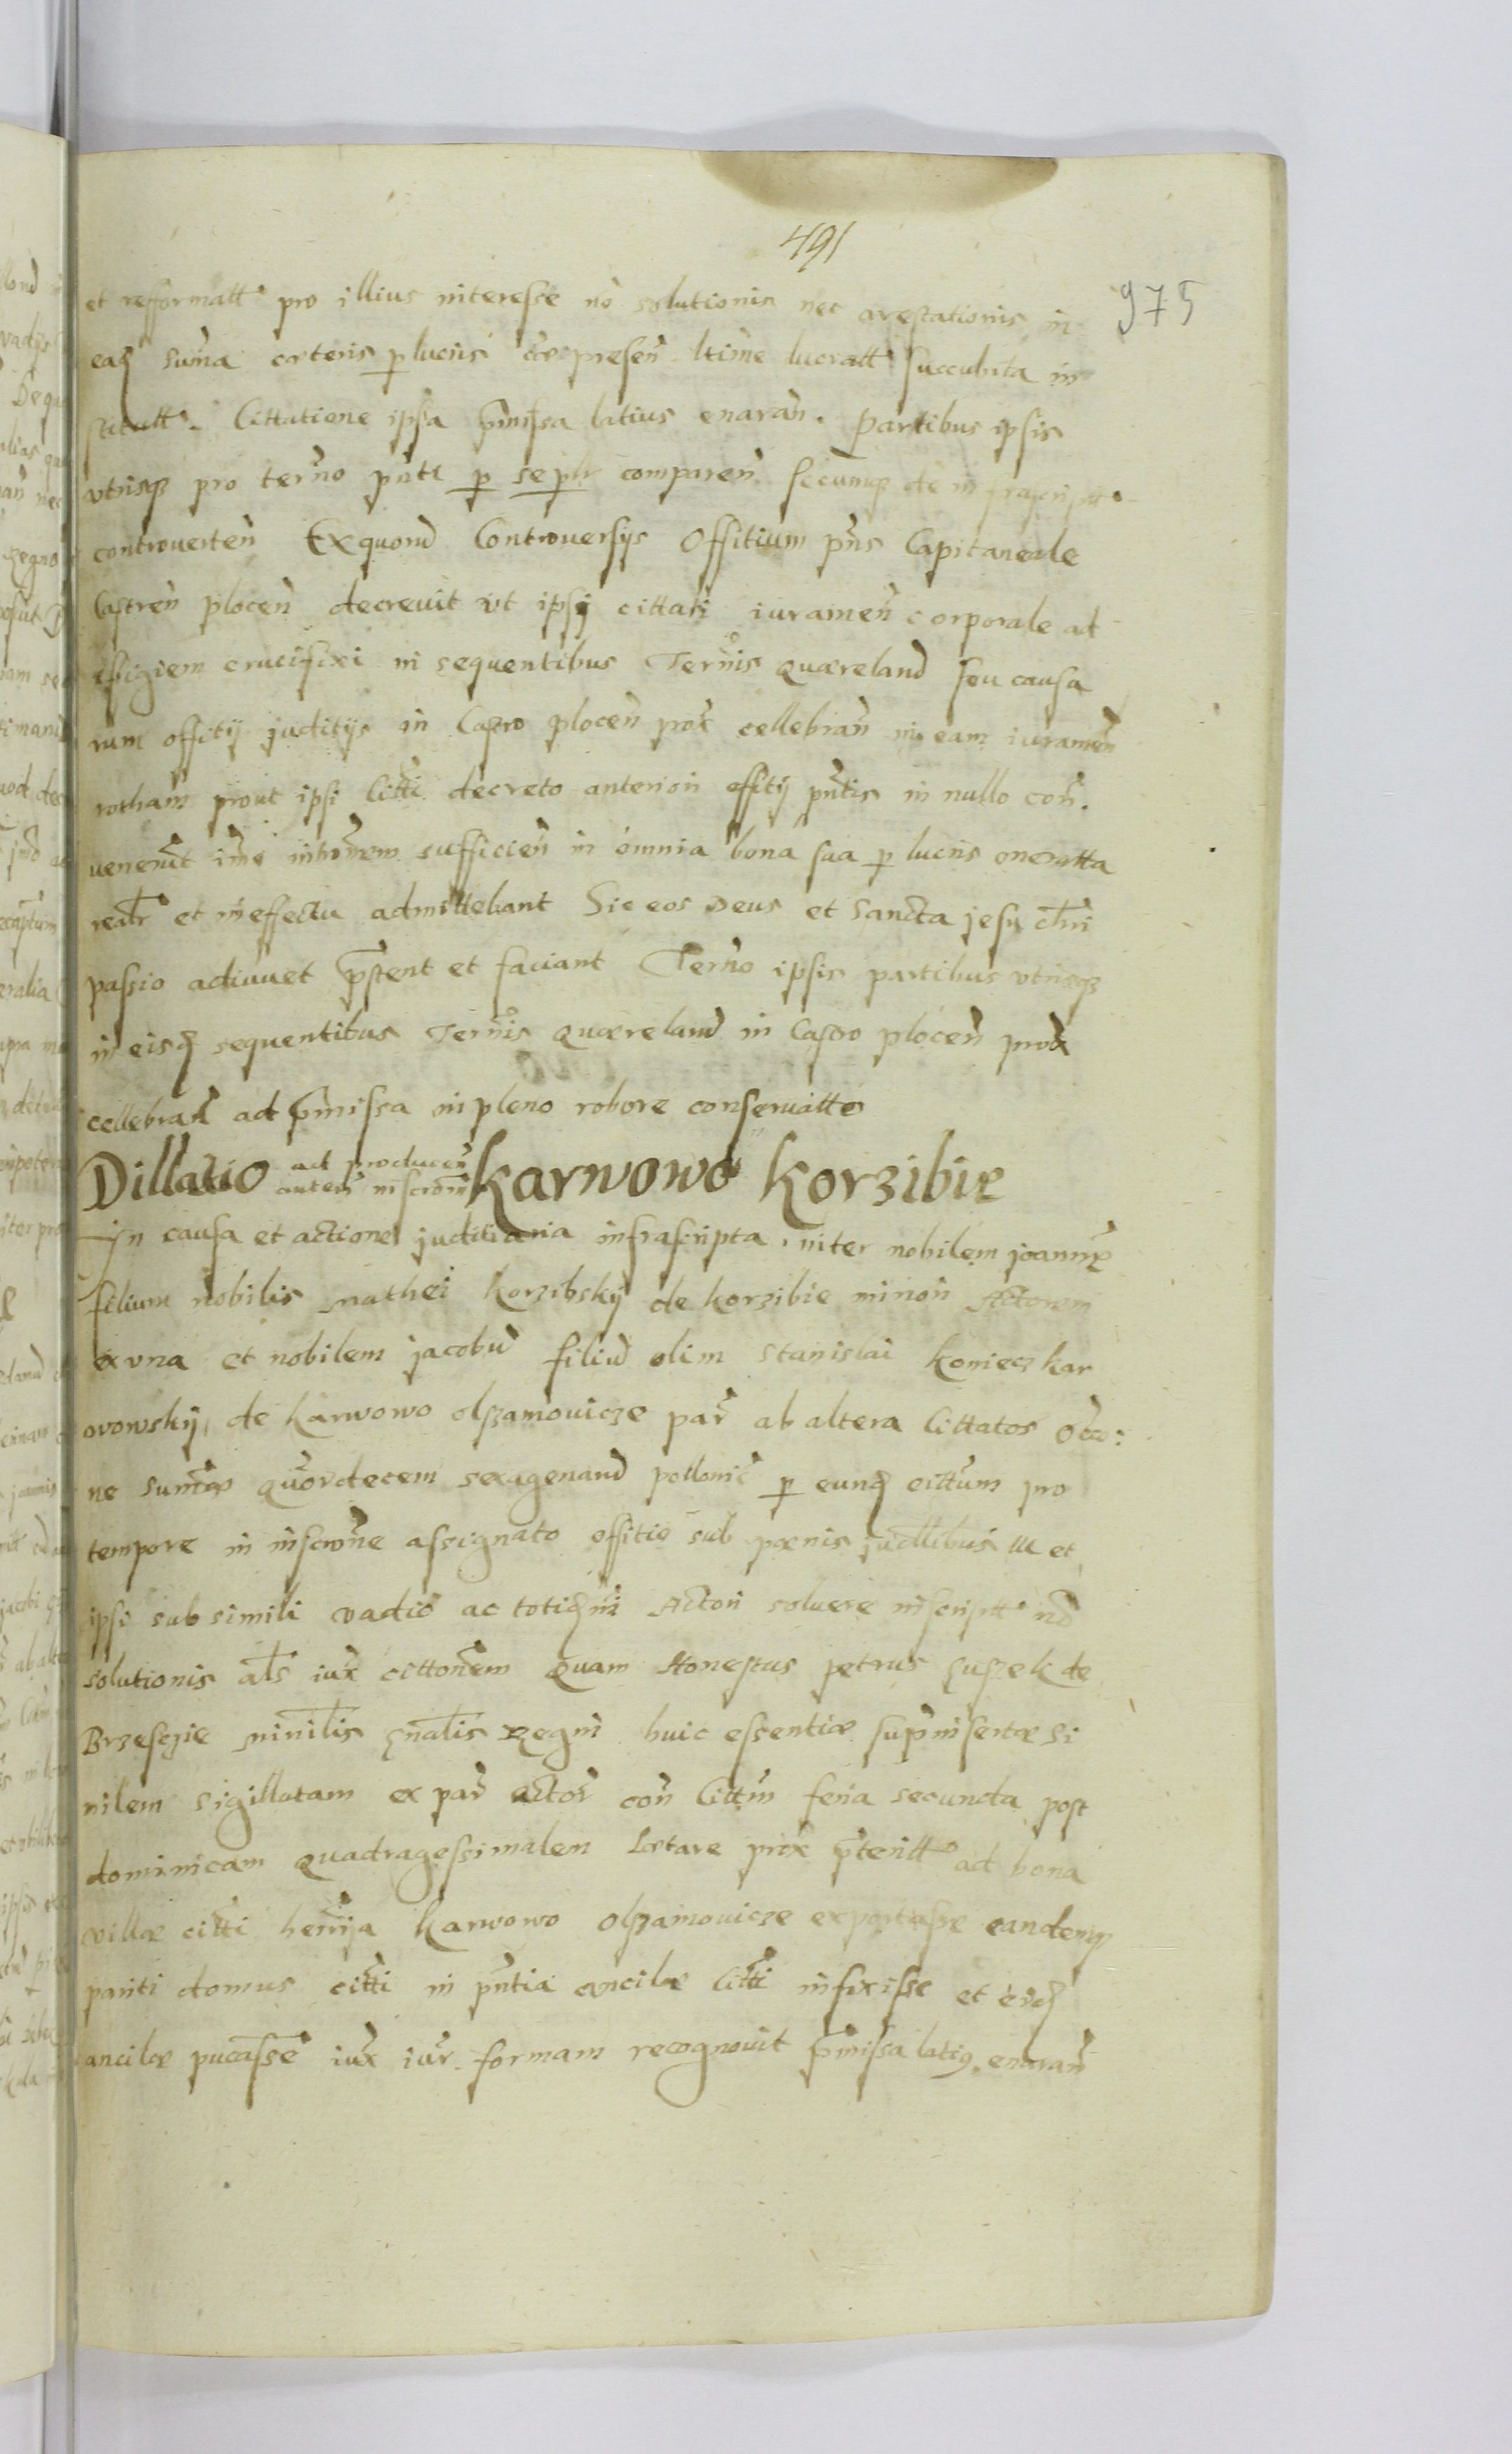 491
975
et refformatt. pro illius interesse nō solutionis nec arestationis in
ead. suma cæteris p lucris præsen. ltime lucratt succubita in
statutt. Cittatione ipsa p̄missa latius enaran. Partibus ipsis
vtrisq3 pro terno pn̄ti p se comparen. secumq3 de infrascriptt.
controverten Ex quorud Controversijs Offitium pn̄s Capitaneale
Castren plocen decrevit vt ipsij cittati iuramen corporale ad
effigiem crucifixi in sequentibus Ternis quæreland seu causa
rum offitij juditijs in Castro plocen prox cellebran in eam iuramen
rotham prout ipsi Citti decreto anteriori offitij pn̄tis in nullo con.
venerūt sufficien in omnia bona sua p lucris oneratta
realr et in effectu admittebant Sic eos Deus et Sancta jesu chri
passio adiuuet p̄stent et faciant Terno ipsis partibus vtrisq3
in eisd sequentibus Ternis quæreland in Castro plocen prox
cellebran ad p̄missa in pleno robore conservatto
Dillatio ad producen auten inscrōm Karwowo Korzibie
In causa et actione juditiaria infrascripta, inter nobilem joannē
filium nobilis Mathei Korzibskij de korzibie minori Actorem
ex vna et nobilem jacobū filiū olim Stanislai Koniecz kar
wowskij, de Karwowo olszamowicze par ab altera Cittatos occa:
ne sumæ quordecem sexagenarud pollonic p eund cittum pro
tempore in inscrone assignato offitio sub pœnis judlibus et
ipsi sub simili vadio ac totid Actori soluere inscriptt nō
solutionis als iux cittonem quam Honestus petrus suszek de
Brzesczie ministlis gnalis Regni huic essentiæ insertæ si
milem sigillatam ex par actor con Cittm feria secunda post
dominicam quadragessimalem Lætare prox p̄teritt ad bona
villæ citti Karwowo olszamowicze exportasse eandemq3
pariti domus citti in pn̄tia ancilæ Citti infixisse et eid
ancilæ pucasse iux iur. formam recognovit p̄missa latius enaran